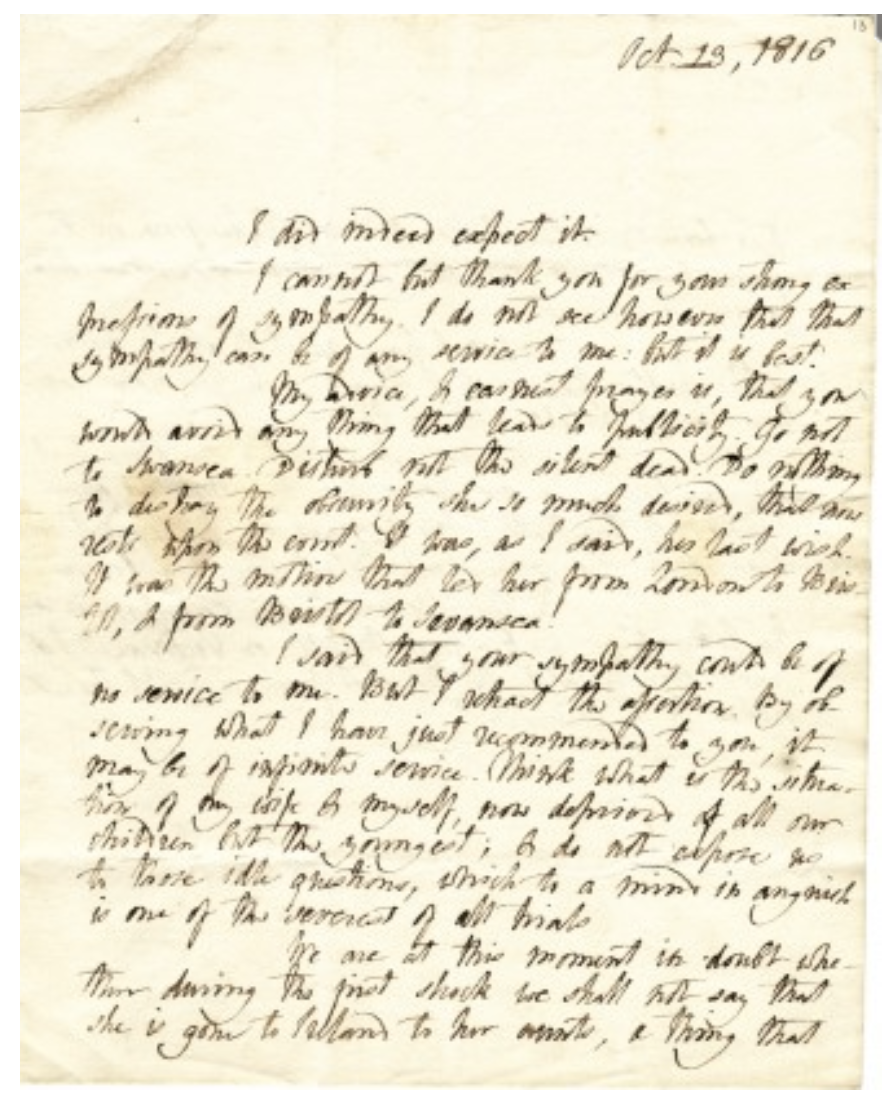 13
Oct. 13, 1816
I did indeed expect it.
I cannot but thank you for your strong ex-
pressions of sympathy. I do not see however that that
sympathy can be of any service to me: but it is best.
My advice, & earnest prayer is, that you
would avoid any thing that leads to publicity. Go not
to Swansea. Disturb not the silent dead. Do nothing
to destroy the obscurity she so much desired, that now
rests upon the event. It was, as I said, her last wish.
It was the motive that led her from London to Bris-
tol, & from Bristol to Swansea.
I said that your sympathy could be of
no service to me. But I retract the assertion. By ob-
serving what I have just recommended to you, it
may be of infinite service. Think what is the situa-
tion of my wife & myself, now deprived of all our
children but the youngest; & do not expose us
to those idle questions, which to a mind in anguish
is one of the severest of all trials
We are at this moment in doubt whe-
ther during the first shock we shall not say that
she is gone to Ireland to her aunts, a thing that